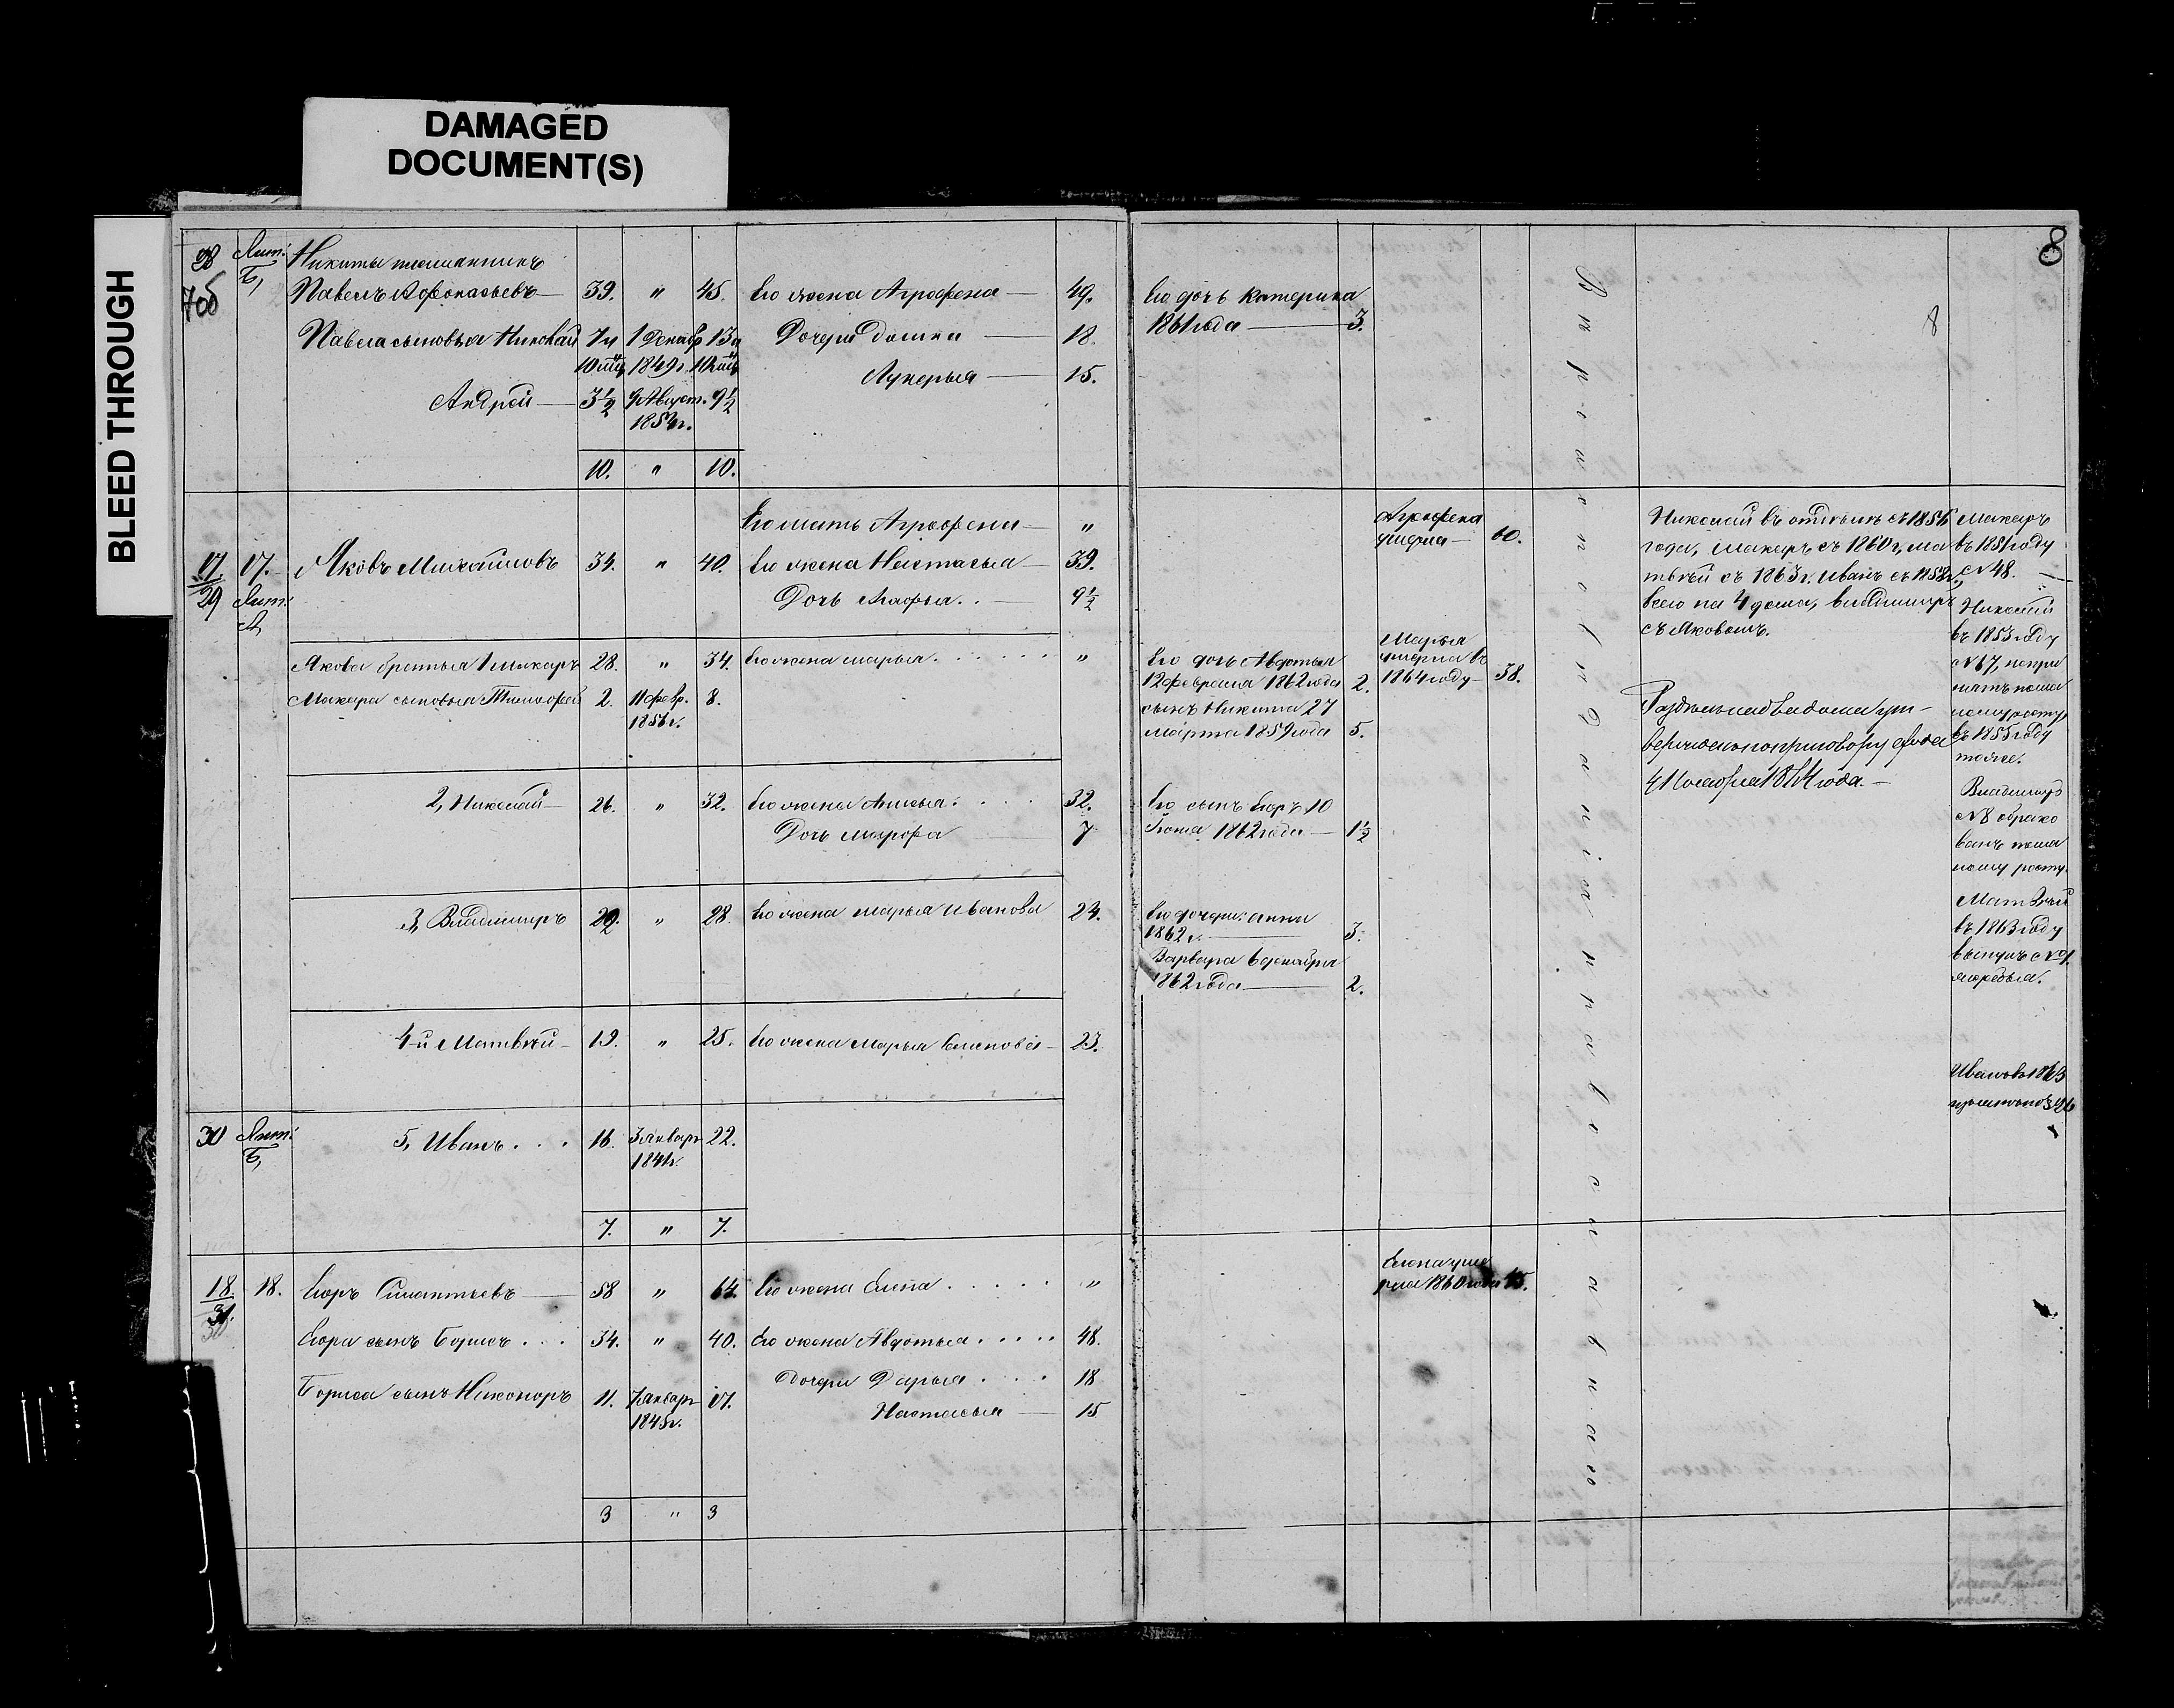 DAMAGED
DOCUMENT(S)
BLEED THROUGH
8
8
28 Лит. Б,
Никиты племянникъ
Павелъ Афонасьевъ — 39. " 45. Его жена Агрофена — 49. Его дочь Катерина
Павла сыновья Николай 7 и 1 Декабр 13 и Дочери Домна — 18. 1861 года — 3.
10 мцъ 1849 г. 10 мцъ
Лукерья — 15.
Андрей — 3½ 9 Август. 9½
10. " 10.
Его мать Агрофена — " Агрофена
умерла — 60.
17/29 17. Лит. А, Яковъ Михайловъ 34. " 40. Его жена Настасья — 39.
Дочь Агафья . . — 9½
Николай въ отдѣлкѣ съ 1856
года, Макаръ съ 1860 г, Ма
твѣй съ 1863 г. Иванъ съ 1858 г,
всего на 4 дома, Владимиръ
съ Яковомъ.
Макаръ
въ 1851 году
№ 48.
Якова братья 1 Макаръ 28. " 34. Его жена Марья . . . . . . " Его дочь Авдотья
12 февраля 1862 года 2.
Марья
умерла въ
1864 году — 38.
Макара сыновья Тимофей 2. 11 февр. 8.
сынъ Никита 27
марта 1859 года 5.
Николай
въ 1853 году
№ 67, непри
нятъ по ма
лому росту,
въ 1855 году
тоже.
Раздѣлъ на два дома ут-
вержденъ по приговору схода
4 Ноября 1864 года. —
2, Николай — 26. " 32. Его жена Анисья . . . . 32. Его сынъ Егоръ 10
Дочь Маврофа 7
1862 года — 1½
Владимиръ
№ 8 обрако
ванъ по ма
лому росту.
3, Владимиръ 22. " 28. Его жена Марья Иванова 24. Его дочери: Анна
1862 г. — 3.
Варвара 6 декабря
1862 года — 2.
Матвѣй
въ 1863 году
вынулъ №
жеребья.
4-й Матвѣй — 19. " 25. Его жена Марья Семенова — 23.
30 Лит. Б, 5, Иванъ . . . 16. 3 Январ 22.
1841 г.
7. " 7.
18/31. 18. Егоръ Силантьевъ — 58 " 64. Его жена Елена . . . . . " Елена уме
рла 1860 года
Егора сынъ Борисъ . . . 34. " 40. Его жена Авдотья . . . . . 48.
Дочери Дарья . . . . 18
Бориса сынъ Никоноръ 11. 7 Январ 17.
1845 г.
Настасья — 15
3 " 3